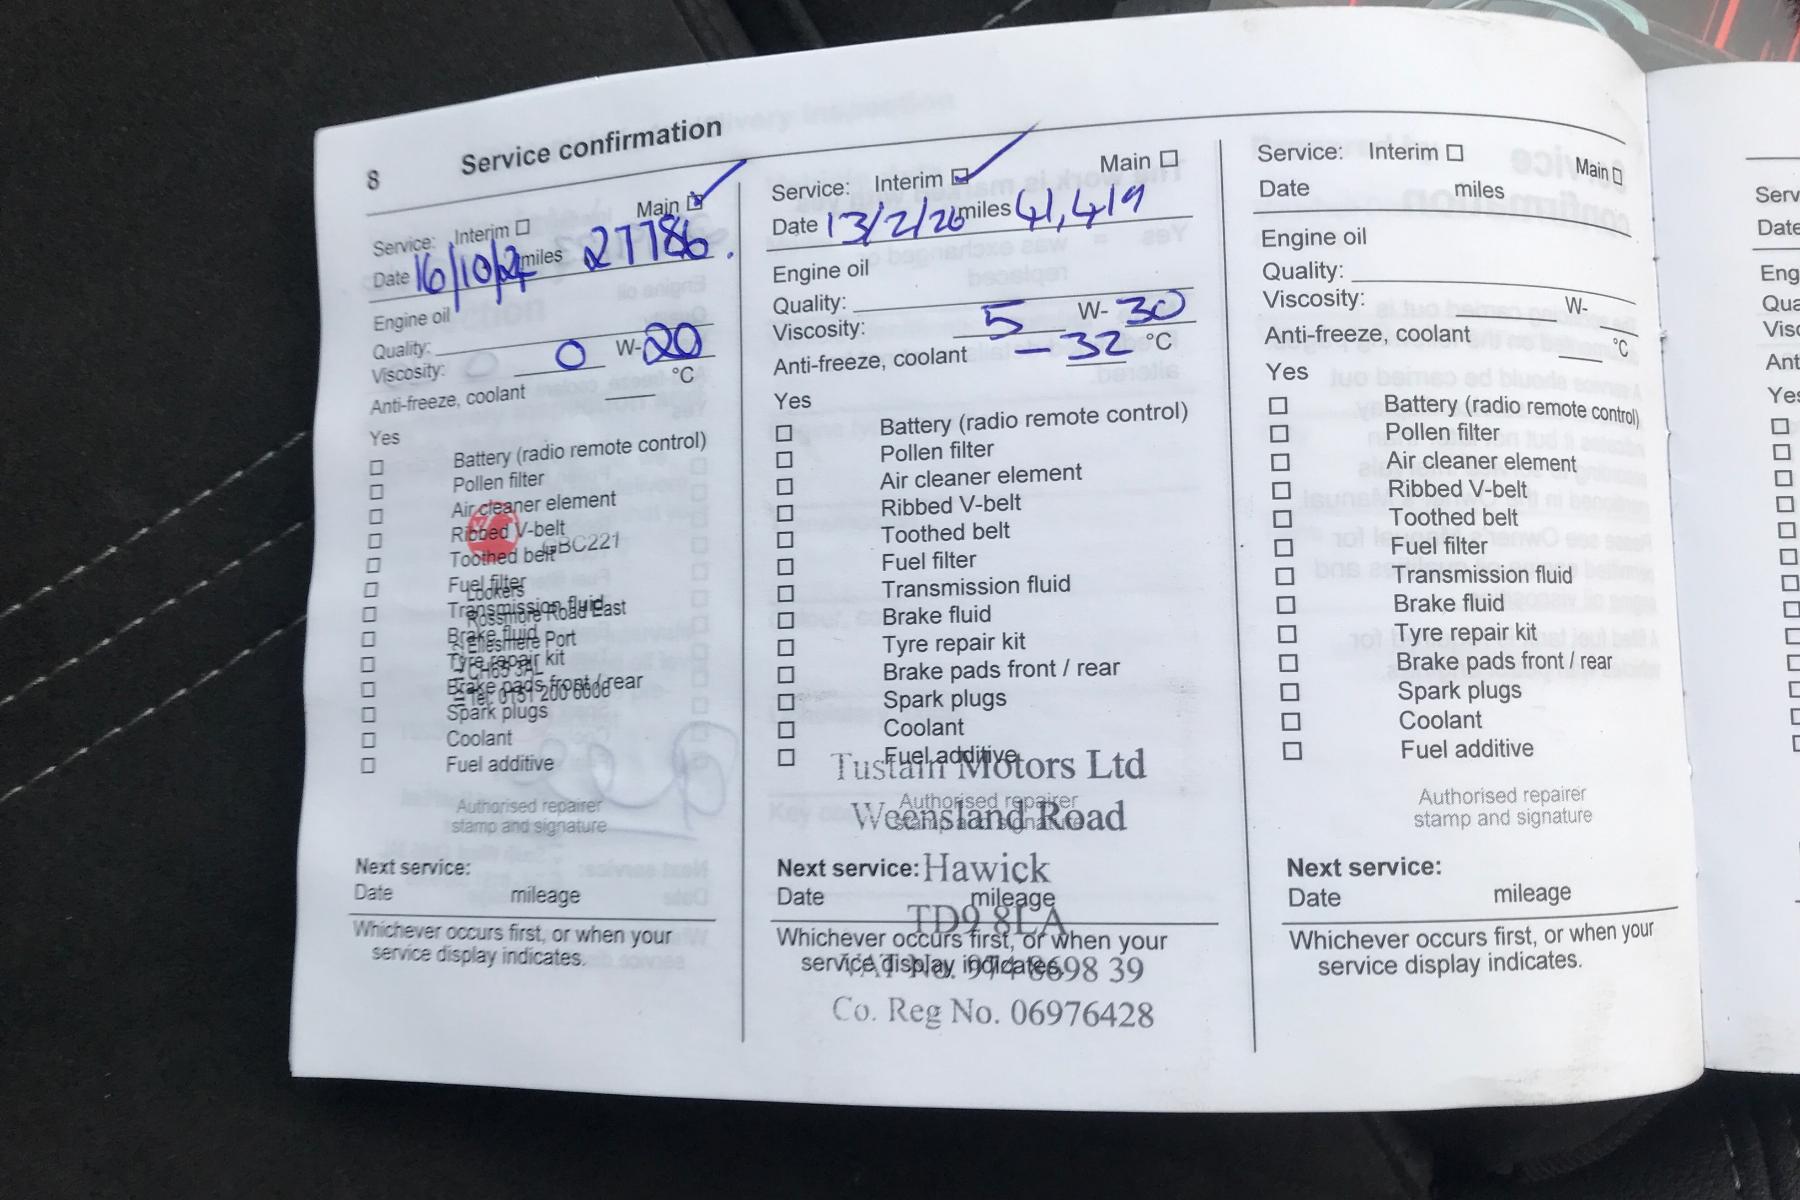 8 Service confirmation
Service: Interim Main
Date 16/10/2 miles 27786.
Engine oil
Quality:
Viscosity: 0 W-20
Anti-freeze, coolant °C
Yes
Battery (radio remote control)
Pollen filter
Air cleaner element
Ribbed V-belt
Toothed belt
GBC221
Fuel filter
Lookers
Transmission fluid
Rossmore Road East
Brake fluid
Ellesmere Port
Tyre repair kit
CH65 3AL
Brake pads front / rear
Tel: 0151 200 6006
Spark plugs
Coolant
Fuel additive
Authorised repairer
stamp and signature
Next service:
Date mileage
Whichever occurs first, or when your
service display indicates.
Service: Interim Main
Date 13/2/26 miles 41,419
Engine oil
Quality:
Viscosity: 5 W-30
Anti-freeze, coolant -32 °C
Yes
Battery (radio remote control)
Pollen filter
Air cleaner element
Ribbed V-belt
Toothed belt
Fuel filter
Transmission fluid
Brake fluid
Tyre repair kit
Brake pads front / rear
Spark plugs
Coolant
Fuel additive
Tustain Motors Ltd
Authorised repairer
stamp and signature
Weensland Road
Next service:
Hawick
Date mileage
TD9 8LA
Whichever occurs first, or when your
service display indicates.
VAT No. 974 8698 39
Co. Reg No. 06976428
Service: Interim Main
Date miles
Engine oil
Quality:
Viscosity: W-
Anti-freeze, coolant °C
Yes
Battery (radio remote control)
Pollen filter
Air cleaner element
Ribbed V-belt
Toothed belt
Fuel filter
Transmission fluid
Brake fluid
Tyre repair kit
Brake pads front / rear
Spark plugs
Coolant
Fuel additive
Authorised repairer
stamp and signature
Next service:
Date mileage
Whichever occurs first, or when your
service display indicates.
Serv
Date
Eng
Qua
Visc
Ant
Yes